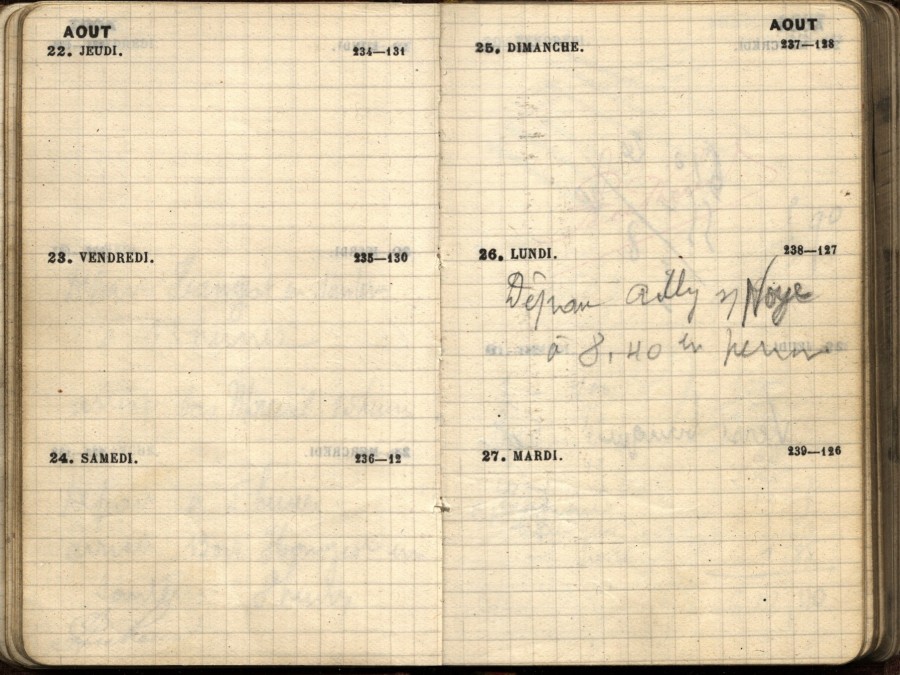 AOUT
22. JEUDI. 234—131
23. VENDREDI. 235—130
24. SAMEDI. 236—12
AOUT
25. DIMANCHE. 237—128
26. LUNDI. 238—127
Ailly s/ Noye
à 8,40 en
27. MARDI. 239—126